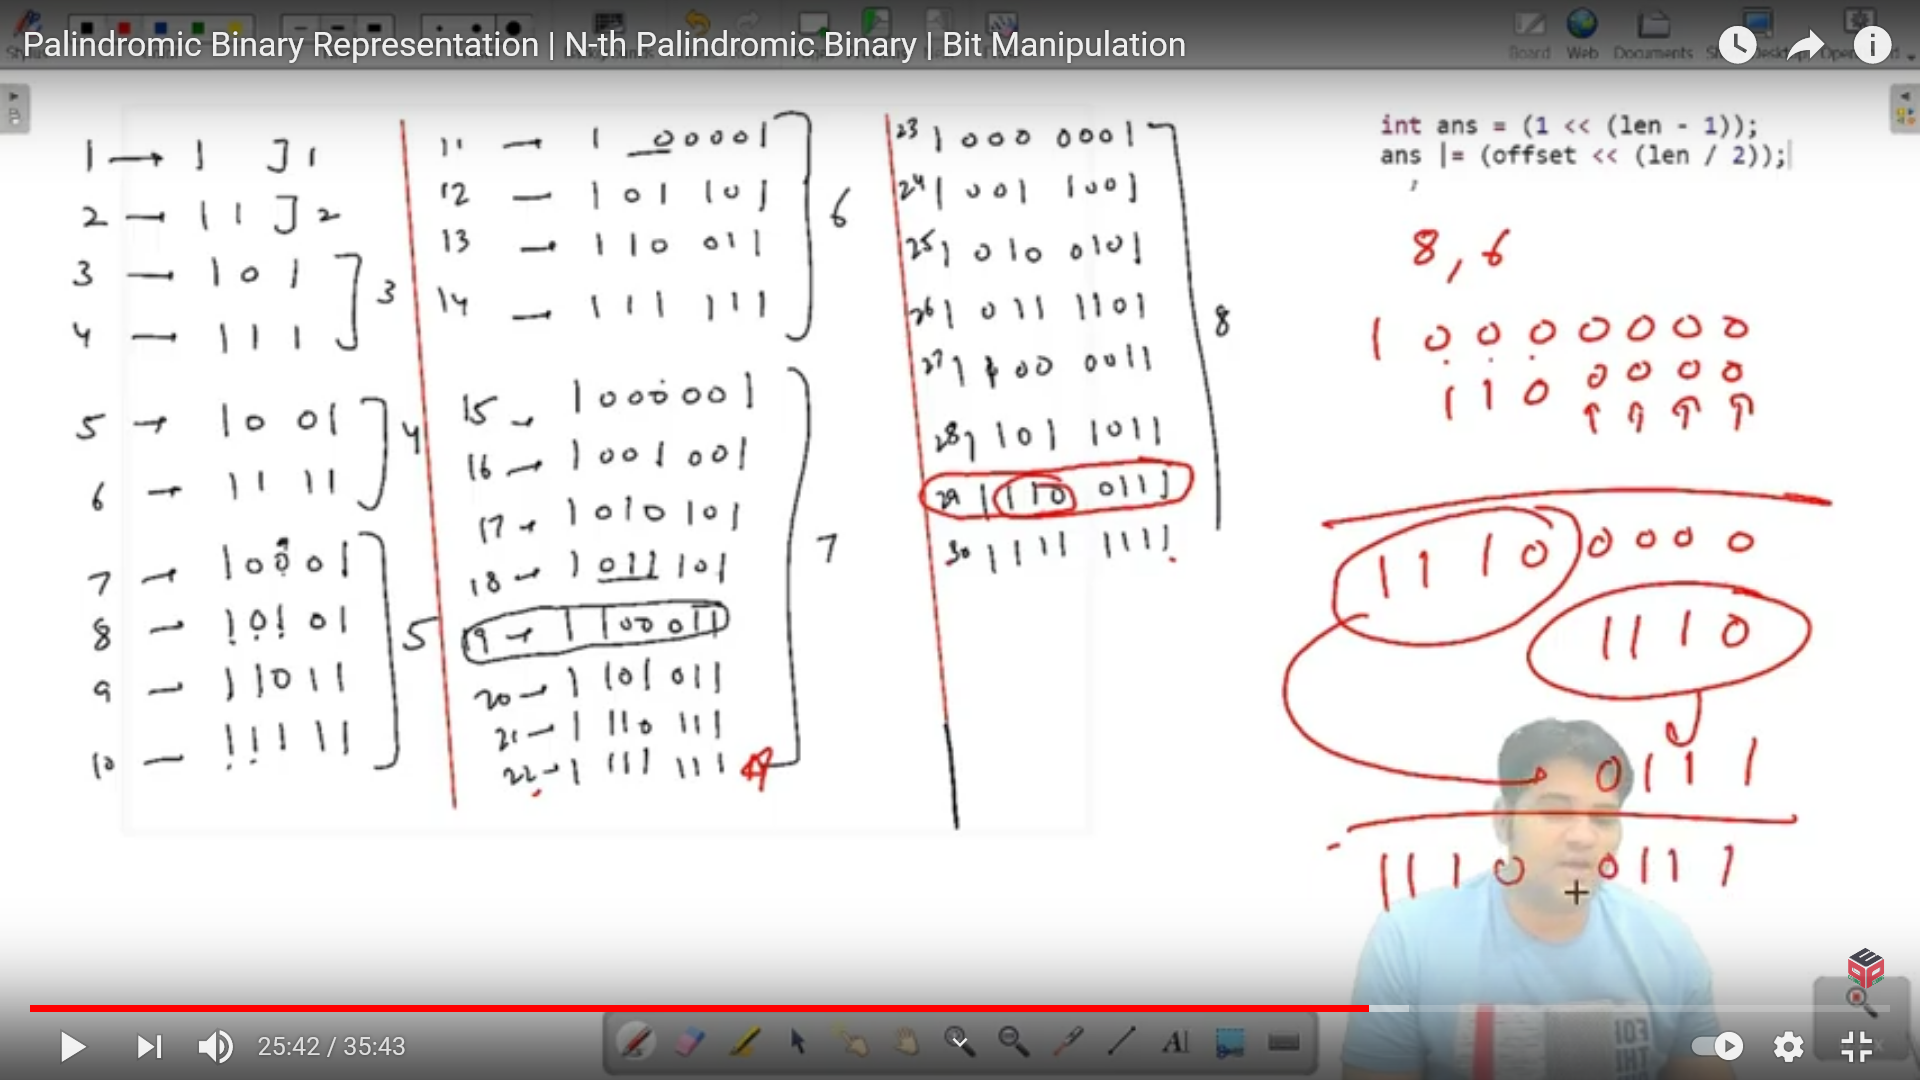 Palindromic Binary Representation | N-th Palindromic Binary | Bit Manipulation
Board Web Documents
1 → 1 ] 1
2 → 1 1 ] 2
3 — 1 0 1
4 — 1 1 1
3
5 → 1 0 0 1
6 → 1 1 1 1
4
7 → 1 0 0 0 1
8 — 1 0 1 0 1
9 — 1 1 0 1 1
10 — 1 1 1 1 1
5
11 → 1 0 0 0 0 1
12 — 1 0 1 1 0 1
13 → 1 1 0 0 1 1
14 → 1 1 1 1 1 1
6
15 → 1 0 0 0 0 0 1
16 → 1 0 0 1 0 0 1
17 → 1 0 1 0 1 0 1
18 → 1 0 1 1 1 0 1
19 → 1 1 0 0 0 1 1
20 → 1 1 0 1 0 1 1
21 — 1 1 1 0 1 1 1
22 → 1 1 1 1 1 1 1
7
23 1 0 0 0 0 0 0 1
24 1 0 0 1 1 0 0 1
25 1 0 1 0 0 1 0 1
26 1 0 1 1 1 1 0 1
27 1 1 0 0 0 0 1 1
28 1 1 0 1 1 0 1 1
29 1 1 1 0 0 1 1 1
30 1 1 1 1 1 1 1 1
8
int ans = (1 << (len - 1));
ans |= (offset << (len / 2));
8, 6
1 0 0 0 0 0 0 0
1 1 0 0 0 0 0
1 1 1 0 0 0 0 0
1 1 1 0
0 1 1 1
1 1 1 0 0 1 1 1
25:42 / 35:43